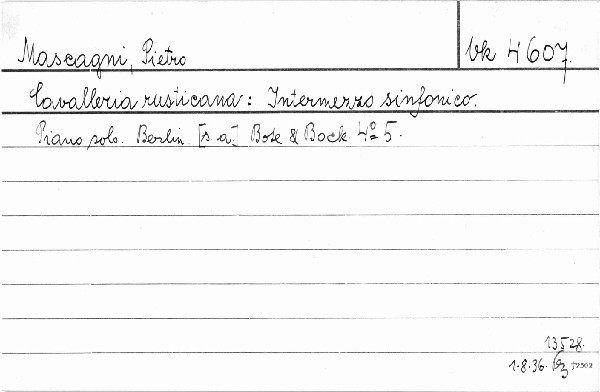 Mascagni, Pietro
vk 4607.
Cavalleria rusticana: Intermezzo sinfonico.
Piano solo. Berlin. [s.a.] Bote & Bock. 4º 5.
13528.
1.8.36.